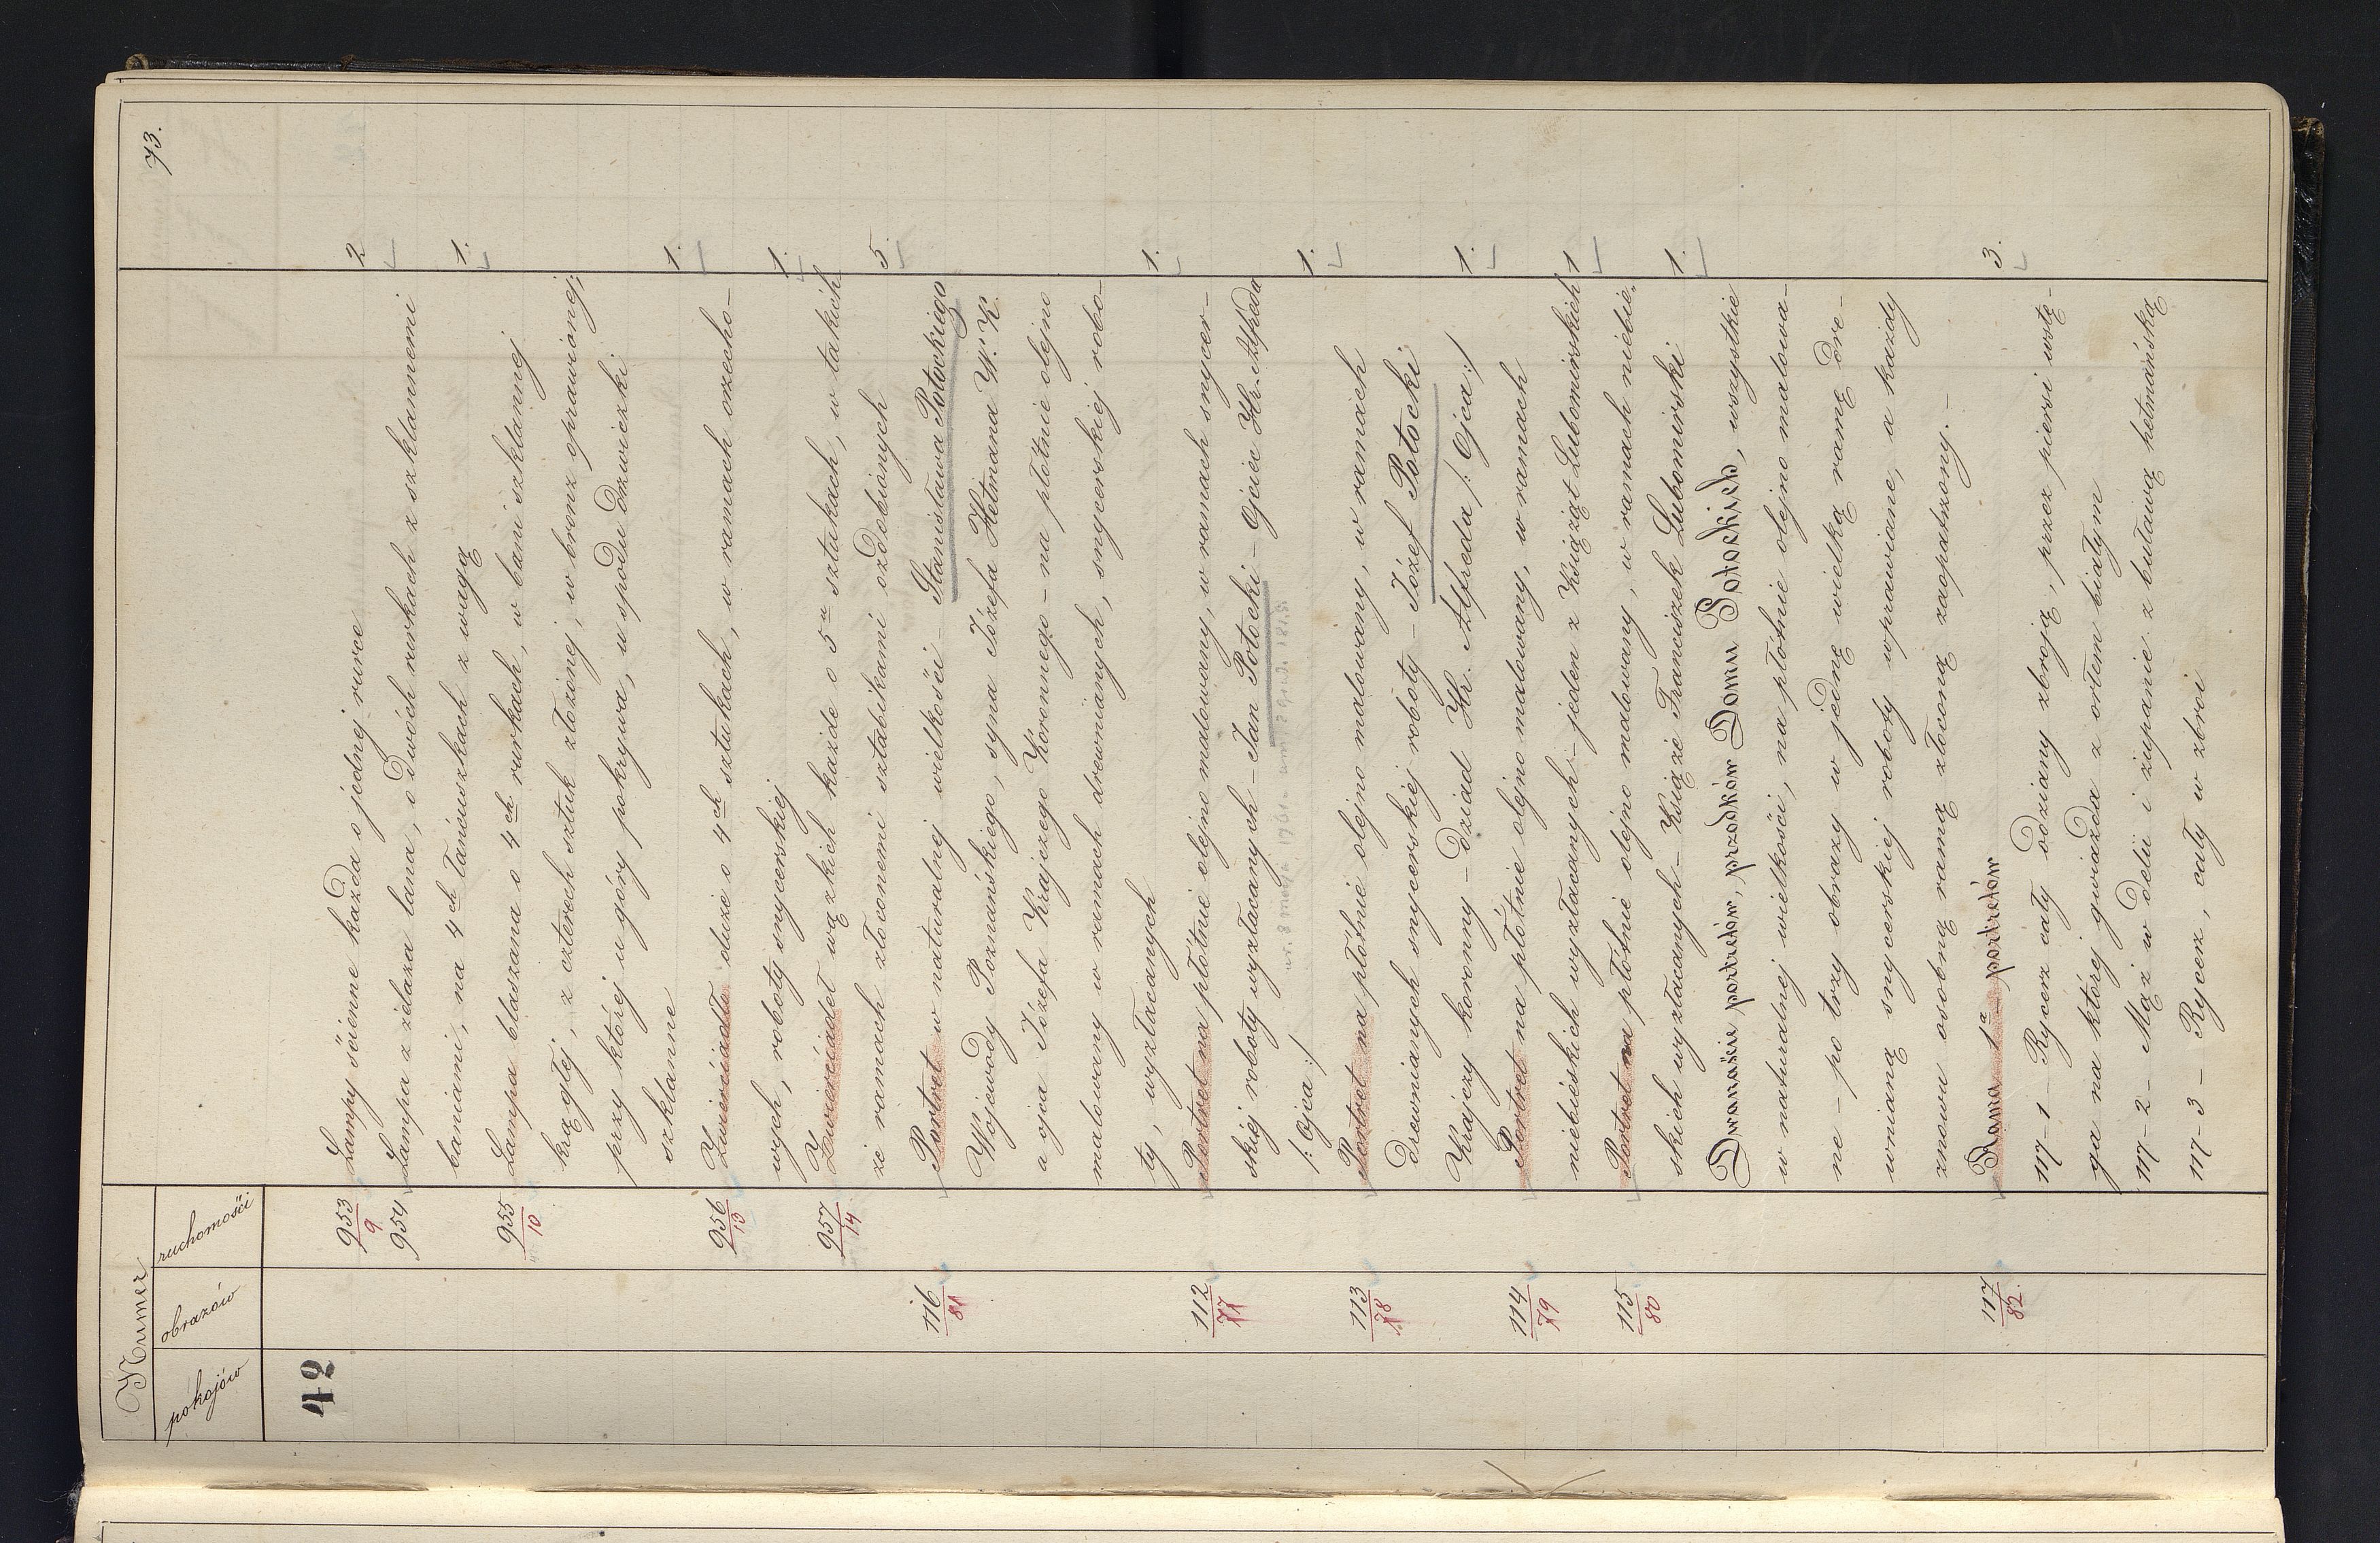 73.
Numer
pokojów obrazów ruchomości
42
953/9 Lampy ścienne każda o jednej rurce 2
954 Lampa z żelaza lana, o dwóch rurkach z szklannemi
baniami, na 4ch łańcuszkach z wagą 1.
955/10 Lampa blaszana o 4ch rurkach, w bani szklannej
krągłej, z czterech sztuk złożonej, w bronz oprawionej,
przy której u góry pokrywa, u spodu drzwiczki
szklanne 1.
956/13 Zwierciadło duże o 4ch sztukach, w ramach orzecho-
wych, roboty snycerskiej 1.
957/14 Zwierciadeł wązkich każde o 5u sztukach, w takich
że ramach złoconemi sztabikami ozdobionych 5.
116/81 Portret w naturalnej wielkości - Stanisława Potockiego
Wojewody Poznańskiego, syna Józefa Hetmana W. K.
a ojca Józefa Krajczego Koronnego - na płótnie olejno
malowany w ramach drewnianych, snycerskiej robo-
ty, wyzłacanych 1.
112/77 Portret na płótnie olejno malowany, w ramach snycer-
skiej roboty wyzłacanych - Jan Potocki - Ojciec Hr. Alfreda
/: Ojca :/ 1.
ur. 8 marca 1761 - um. 2 grud. 1815
113/78 Portret na płótnie olejno malowany, w ramach
drewnianych snycerskiej roboty - Józef Potocki
Krajczy koronny - dziad Hr. Alfreda /: Ojca :/ 1.
114/79 Portret na płótnie olejno malowany, w ramach
niebieskich wyzłacanych - jeden z Książąt Lubomirskich 1
115/80 Portret na płótnie olejno malowany, w ramach niebie-
skich wyzłacanych - Książe Franciszek Lubomirski 1.
Dwanaście portretów, przodków Domu Potockich, wszystkie
w naturalnej wielkości, na płótnie olejno malowa-
ne - po trzy obrazy w jedną wielką ramę dre-
wnianą snycerskiej roboty wprawiane, a każdy
znowu osobną ramą złoconą zaopatrzony. -
117/82 Rama 1a portretów 3.
117 - 1 - Rycerz cały odziany zbroją, przez piersi wstę-
ga na której gwiazda z orłem białym
117 - 2 - Mąż w delii i żupanie z buławą hetmańską
117 - 3 - Rycerz, cały w zbroi